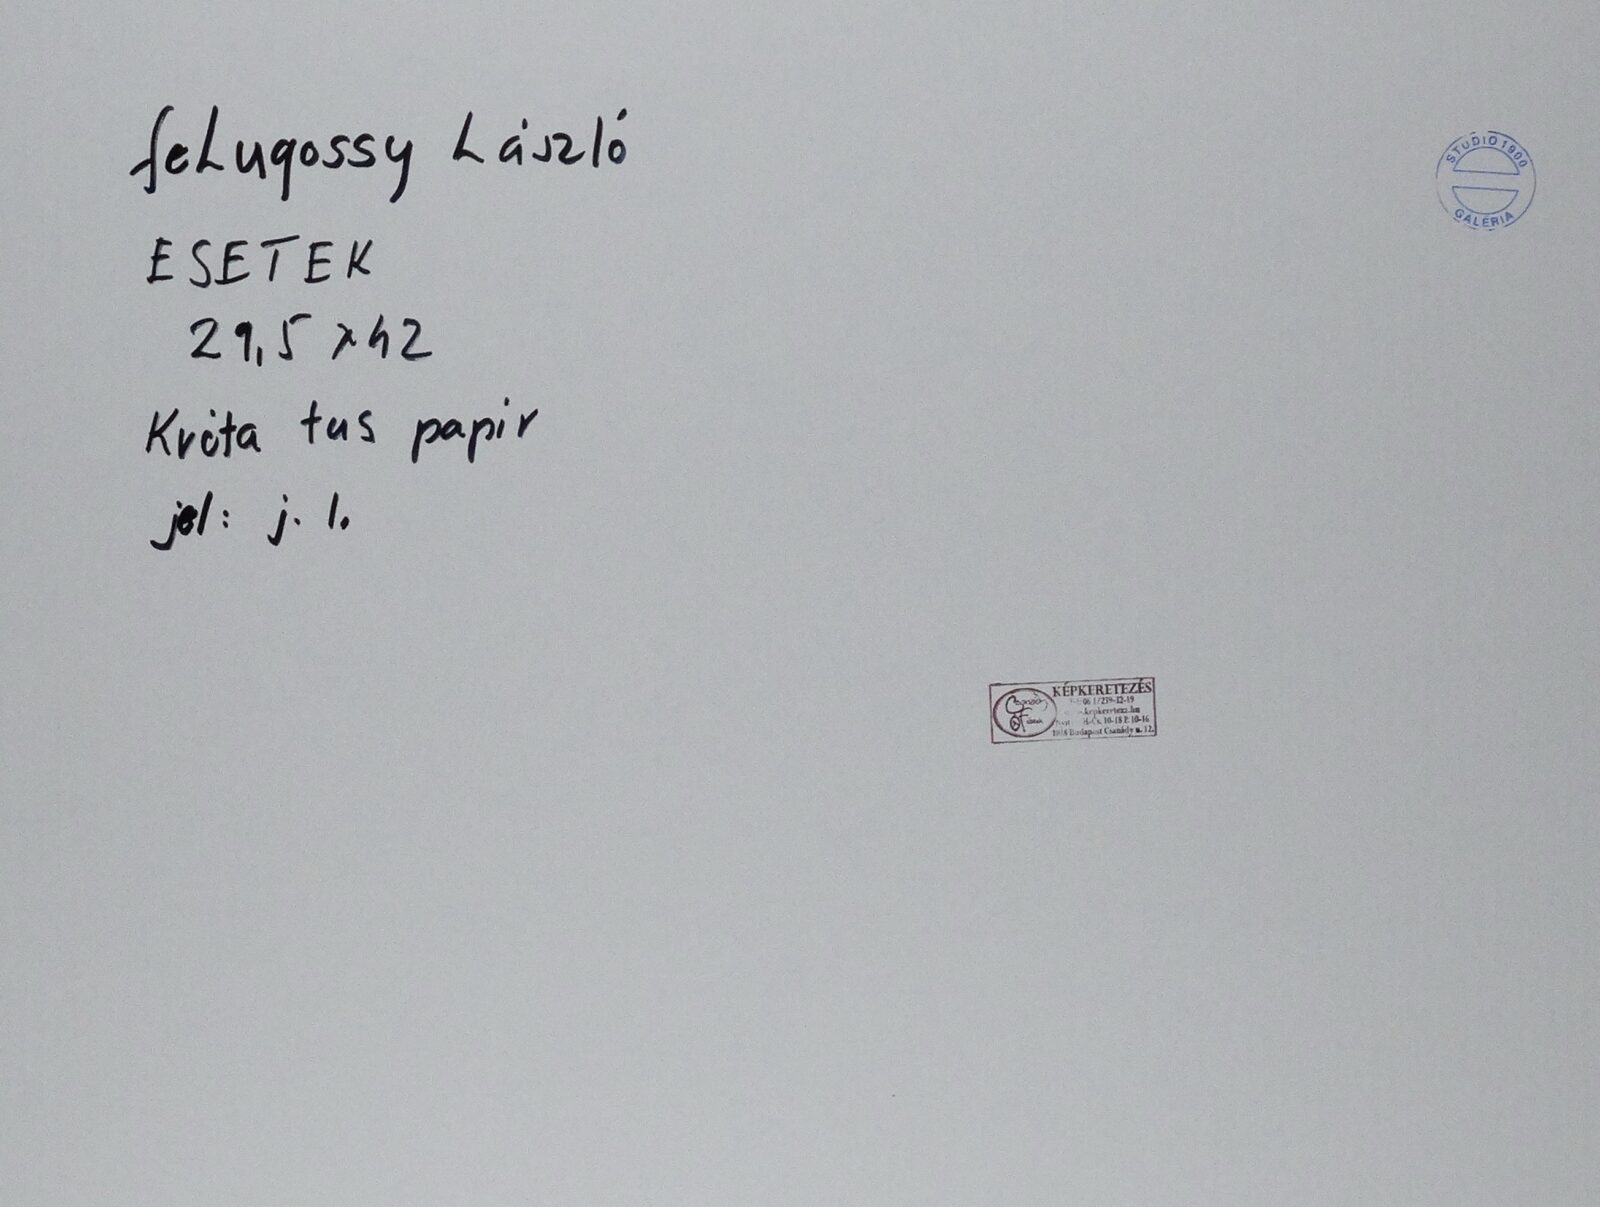 feLugossy László
ESETEK
29,5 x 42
Kréta tus papir
jel: j. l.
STUDIO 1900
GALÉRIA
KÉPKERETEZÉS
06 1/239-12-19
.kepkeretezs.hu
10-18 P. 10-16
Budapest Csanády u. 12.